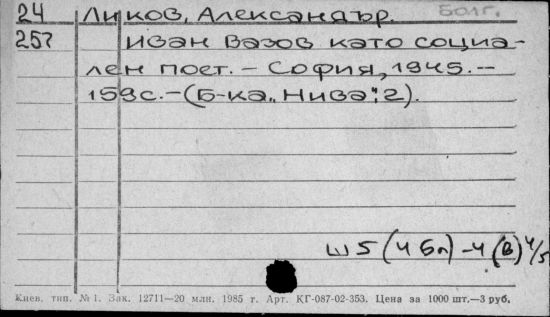 24 Ликов, Александър. Болг.
257 Иван Вазов като социа-
лен поет. – София, 1945. –
159с. – (Б-ка „Нива"; 2).
Ш5 (4 Бл) -4 (В) 4/5
Киев. тип. № 1. Зак. 12711—20 млн. 1985 г. Арт. КГ-087-02-353. Цена за 1000 шт.—3 руб.